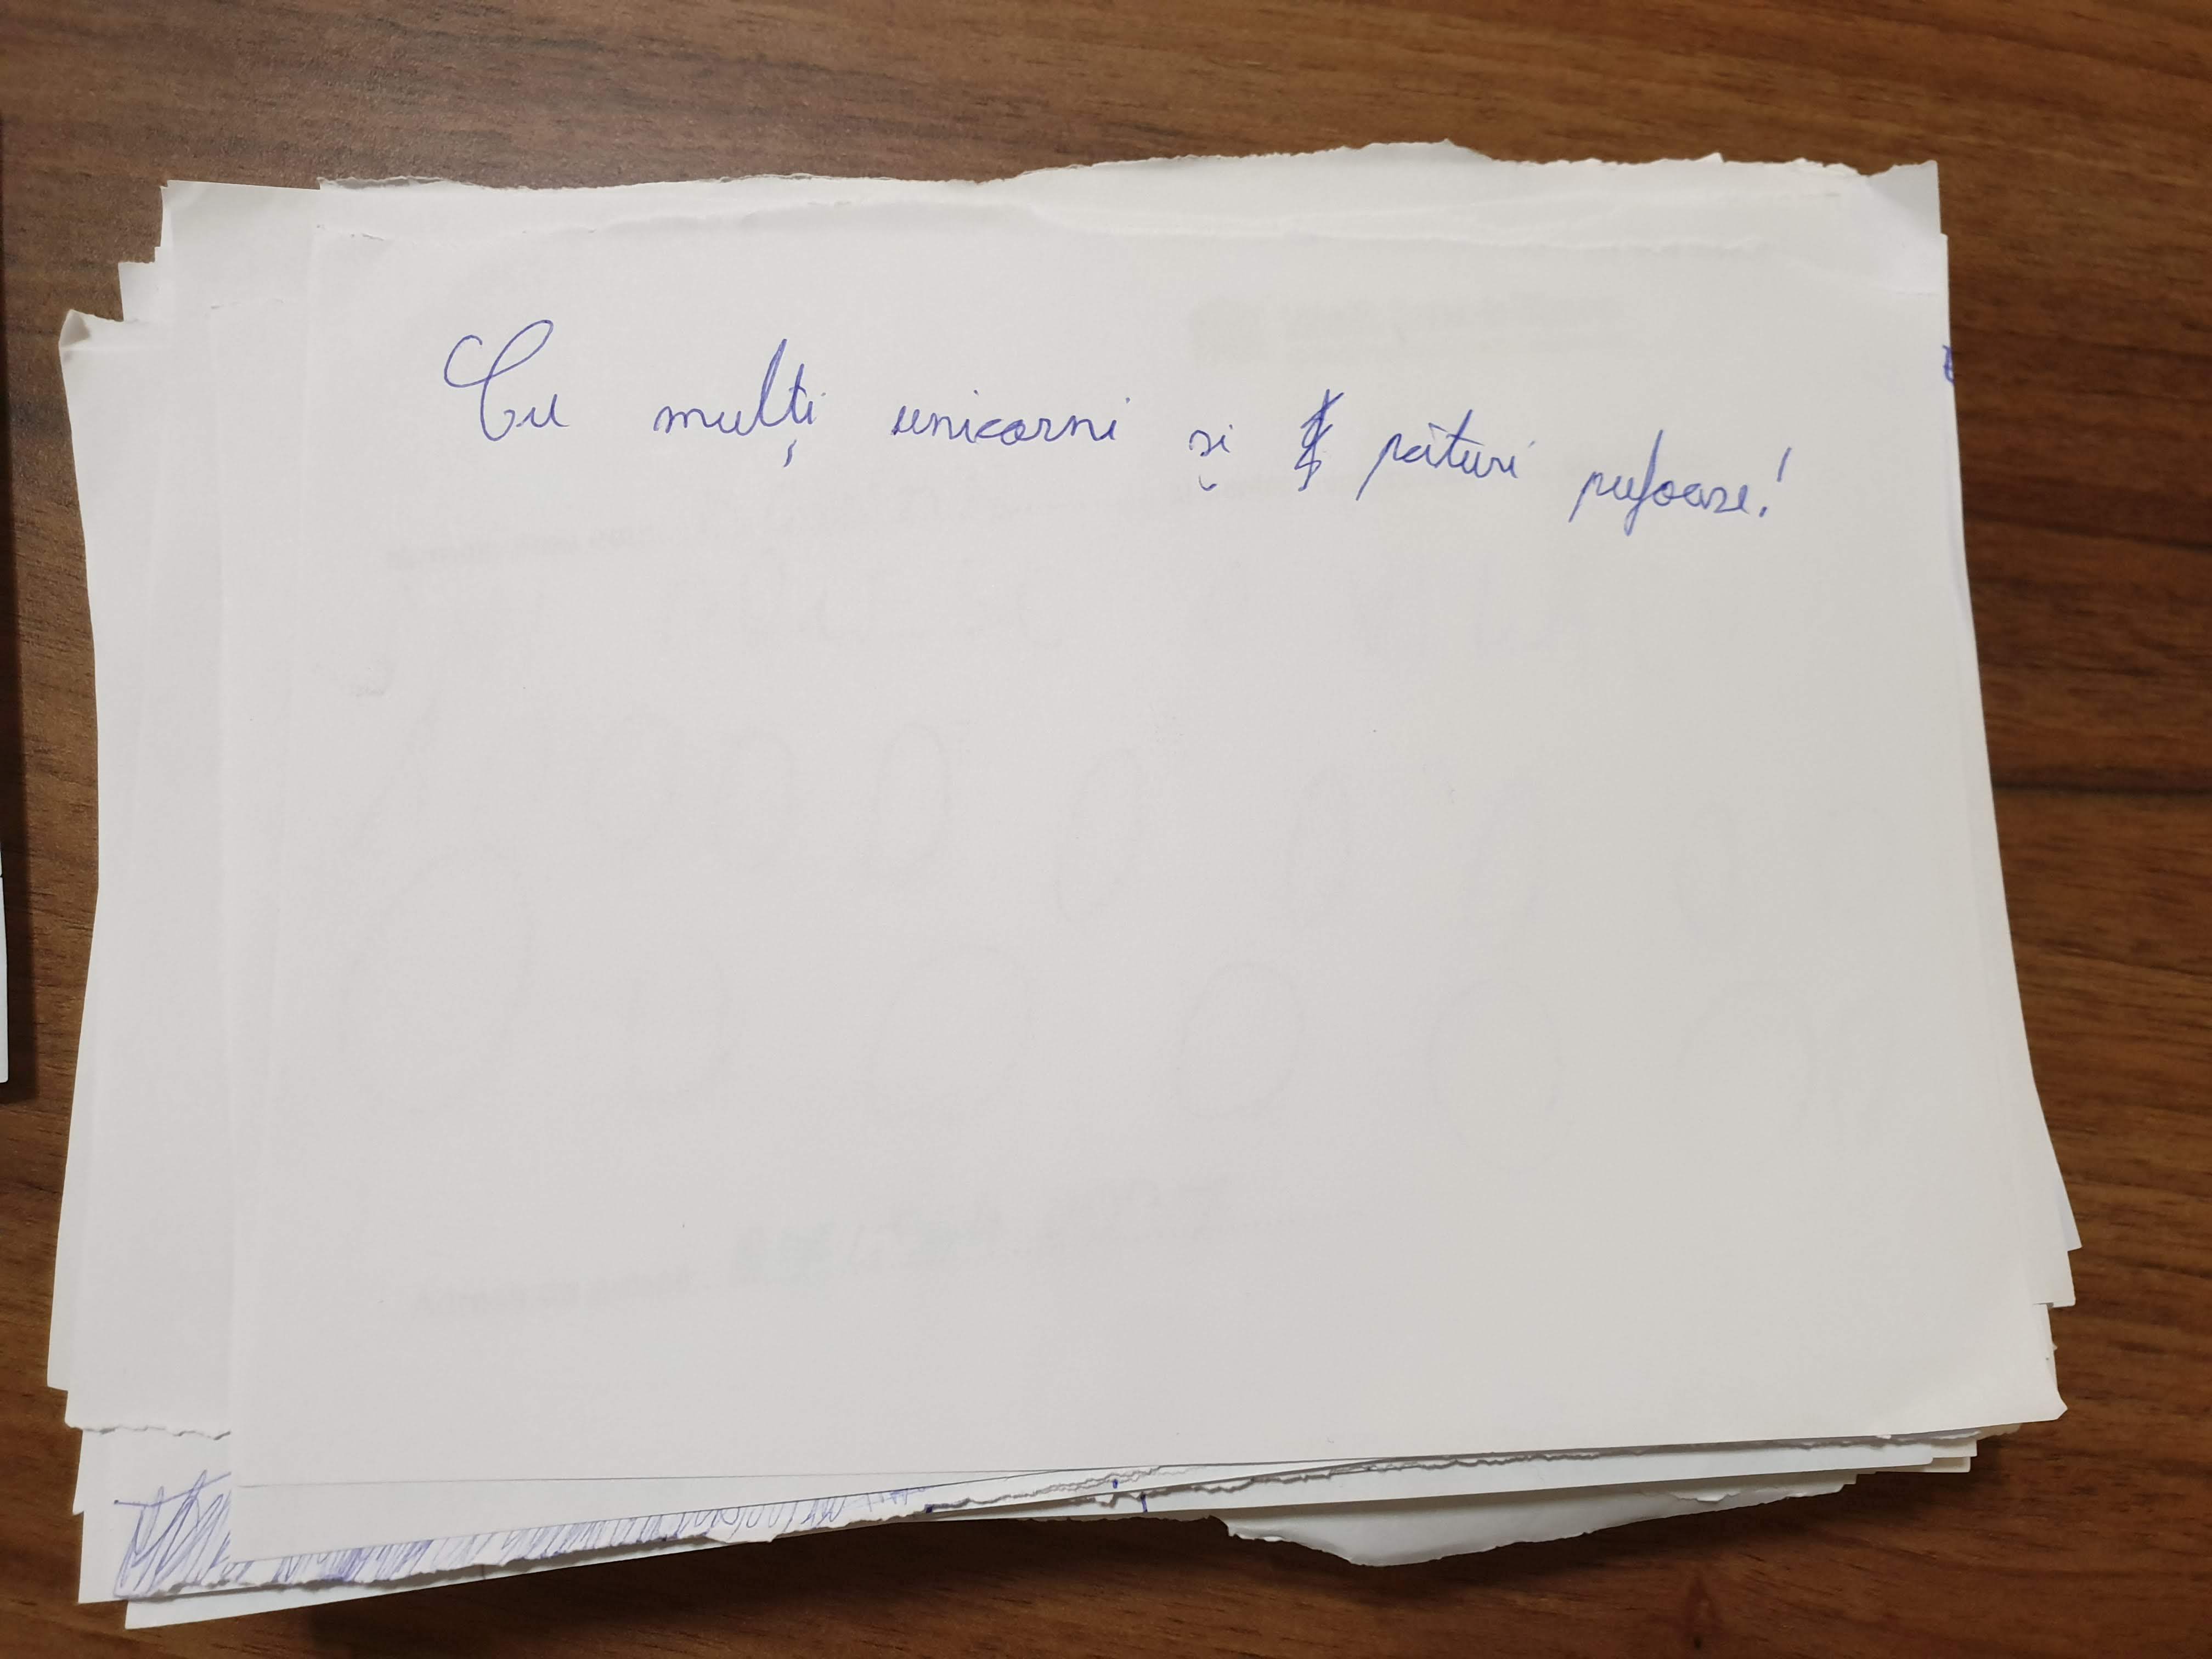 Cu mulți unicorni și pături pufoase!